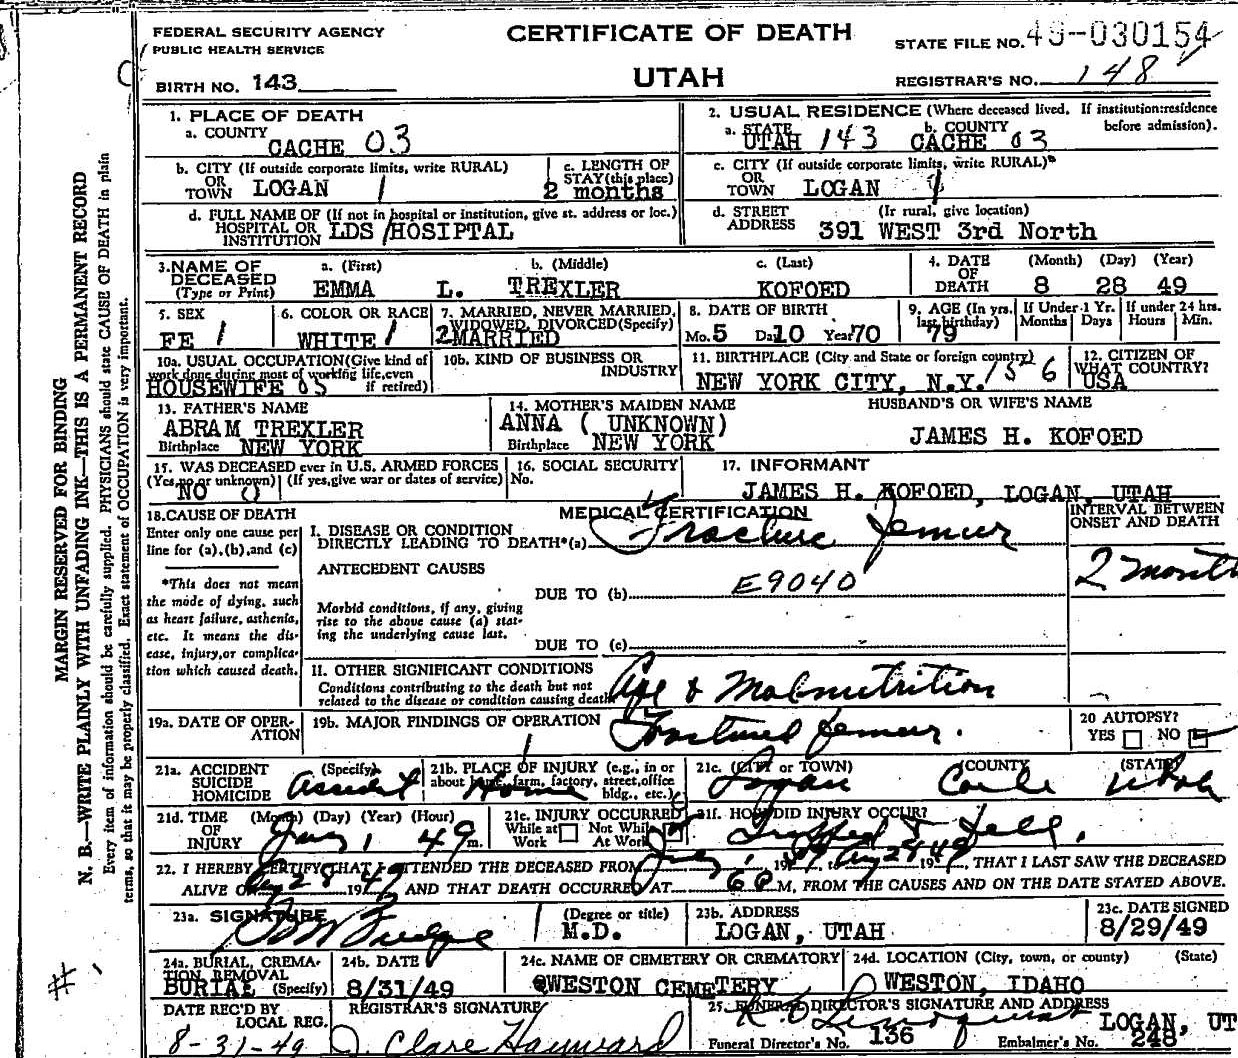 FEDERAL SECURITY AGENCY
PUBLIC HEALTH SERVICE
CERTIFICATE OF DEATH
STATE FILE NO. 49-030154
BIRTH NO. 143
UTAH
REGISTRAR'S NO. 148
MARGIN RESERVED FOR BINDING
N. B.—WRITE PLAINLY WITH UNFADING INK—THIS IS A PERMANENT RECORD
Every item of information should be carefully supplied. PHYSICIANS should state CAUSE OF DEATH in plain
terms, so that it may be properly classified. Exact statement of OCCUPATION is very important.
1. PLACE OF DEATH
a. COUNTY
CACHE 03
2. USUAL RESIDENCE (Where deceased lived. If institution:residence
before admission).
a. STATE UTAH 143 b. COUNTY CACHE 03
b. CITY (If outside corporate limits, write RURAL)
OR
TOWN LOGAN 1
c. LENGTH OF
STAY (this place)
2 months
c. CITY (If outside corporate limits, write RURAL)*
OR
TOWN LOGAN
d. FULL NAME OF (If not in hospital or institution, give st. address or loc.)
HOSPITAL OR
INSTITUTION LDS HOSIPTAL
d. STREET (If rural, give location)
ADDRESS 391 WEST 3rd North
3. NAME OF
DECEASED
(Type or Print)
a. (First) b. (Middle) c. (Last)
EMMA L. TREXLER KOFOED
4. DATE
OF
DEATH
(Month) (Day) (Year)
8 28 49
5. SEX
FE 1
6. COLOR OR RACE
WHITE 1
7. MARRIED, NEVER MARRIED,
WIDOWED, DIVORCED (Specify)
2 MARRIED
8. DATE OF BIRTH
Mo. 5 Da 10 Year 70
9. AGE (In yrs.
last birthday)
79
If Under 1 Yr.
Months Days
If under 24 hrs.
Hours Min.
10a. USUAL OCCUPATION (Give kind of
work done during most of working life, even
if retired)
HOUSEWIFE 05
10b. KIND OF BUSINESS OR
INDUSTRY
11. BIRTHPLACE (City and State or foreign country)
NEW YORK CITY, N.Y.
12. CITIZEN OF
WHAT COUNTRY?
USA
13. FATHER'S NAME
ABRAM TREXLER
Birthplace NEW YORK
14. MOTHER'S MAIDEN NAME
ANNA ( UNKNOWN)
Birthplace NEW YORK
HUSBAND'S OR WIFE'S NAME
JAMES H. KOFOED
15. WAS DECEASED ever in U.S. ARMED FORCES
(Yes, no or unknown) (If yes, give war or dates of service)
NO 0
16. SOCIAL SECURITY
No.
17. INFORMANT
JAMES H. KOFOED, LOGAN, UTAH
18. CAUSE OF DEATH
Enter only one cause per
line for (a), (b), and (c)
*This does not mean
the mode of dying, such
as heart failure, asthenia,
etc. It means the dis-
ease, injury, or complica-
tion which caused death.
MEDICAL CERTIFICATION
I. DISEASE OR CONDITION
DIRECTLY LEADING TO DEATH*(a) Fracture femur
INTERVAL BETWEEN
ONSET AND DEATH
2 month
ANTECEDENT CAUSES
DUE TO (b) E9040
Morbid conditions, if any, giving
rise to the above cause (a) stat-
ing the underlying cause last.
DUE TO (c)
II. OTHER SIGNIFICANT CONDITIONS
Conditions contributing to the death but not
related to the disease or condition causing death.
Age & Malnutrition
19a. DATE OF OPER-
ATION
19b. MAJOR FINDINGS OF OPERATION
Fractured femur.
20 AUTOPSY?
YES NO
21a. ACCIDENT (Specify)
SUICIDE
HOMICIDE
Accident
21b. PLACE OF INJURY (e.g., in or
about home, farm, factory, street, office
bldg., etc.)
Home
21c. (CITY or TOWN) (COUNTY) (STATE)
Logan Cache Utah
21d. TIME (Month) (Day) (Year) (Hour)
OF
INJURY
1 49 m.
21e. INJURY OCCURRED
While at Work Not While At Work
21f. HOW DID INJURY OCCUR?
Tripped & fell.
22. I HEREBY CERTIFY THAT I ATTENDED THE DECEASED FROM July 1, 1949, to Aug 28 1949, THAT I LAST SAW THE DECEASED
ALIVE ON Aug 28 1949 AND THAT DEATH OCCURRED AT 6 P M, FROM THE CAUSES AND ON THE DATE STATED ABOVE.
23a. SIGNATURE (Degree or title)
M.D.
23b. ADDRESS
LOGAN, UTAH
23c. DATE SIGNED
8/29/49
24a. BURIAL, CREMA-
TION, REMOVAL
BURIAL (Specify)
24b. DATE
8/31/49
24c. NAME OF CEMETERY OR CREMATORY
WESTON CEMETERY
24d. LOCATION (City, town, or county) (State)
WESTON, IDAHO
DATE REC'D BY
LOCAL REG.
8-31-49
REGISTRAR'S SIGNATURE
J. Clare Hayward
25. FUNERAL DIRECTOR'S SIGNATURE AND ADDRESS
LOGAN, UT
Funeral Director's No. 136 Embalmer's No. 248